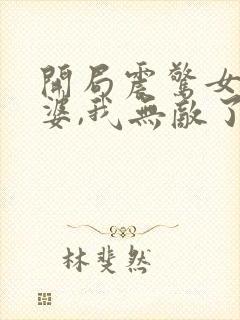 開局震驚女
婆,我無敵了
林斐然